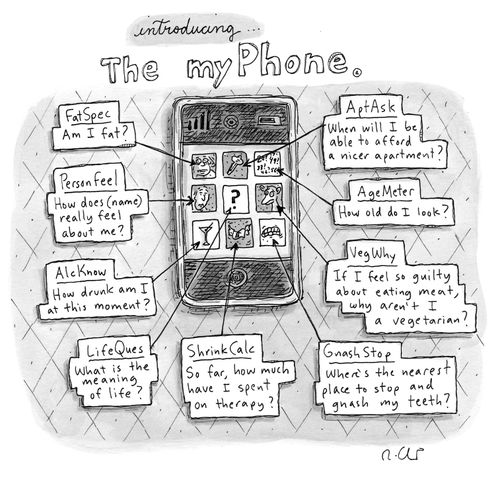 introducing...
The myPhone.
FatSpec
Am I fat?
AptAsk
When will I be
able to afford
a nicer apartment?
PersonFeel
How does (name)
really feel
about me?
?
AgeMeter
How old do I look?
AlcKnow
How drunk am I
at this moment?
VegWhy
If I feel so guilty
about eating meat,
why aren't I
a vegetarian?
LifeQues
What is the
meaning
of life?
ShrinkCalc
So far, how much
have I spent
on therapy?
GnashStop
Where's the nearest
place to stop and
gnash my teeth?